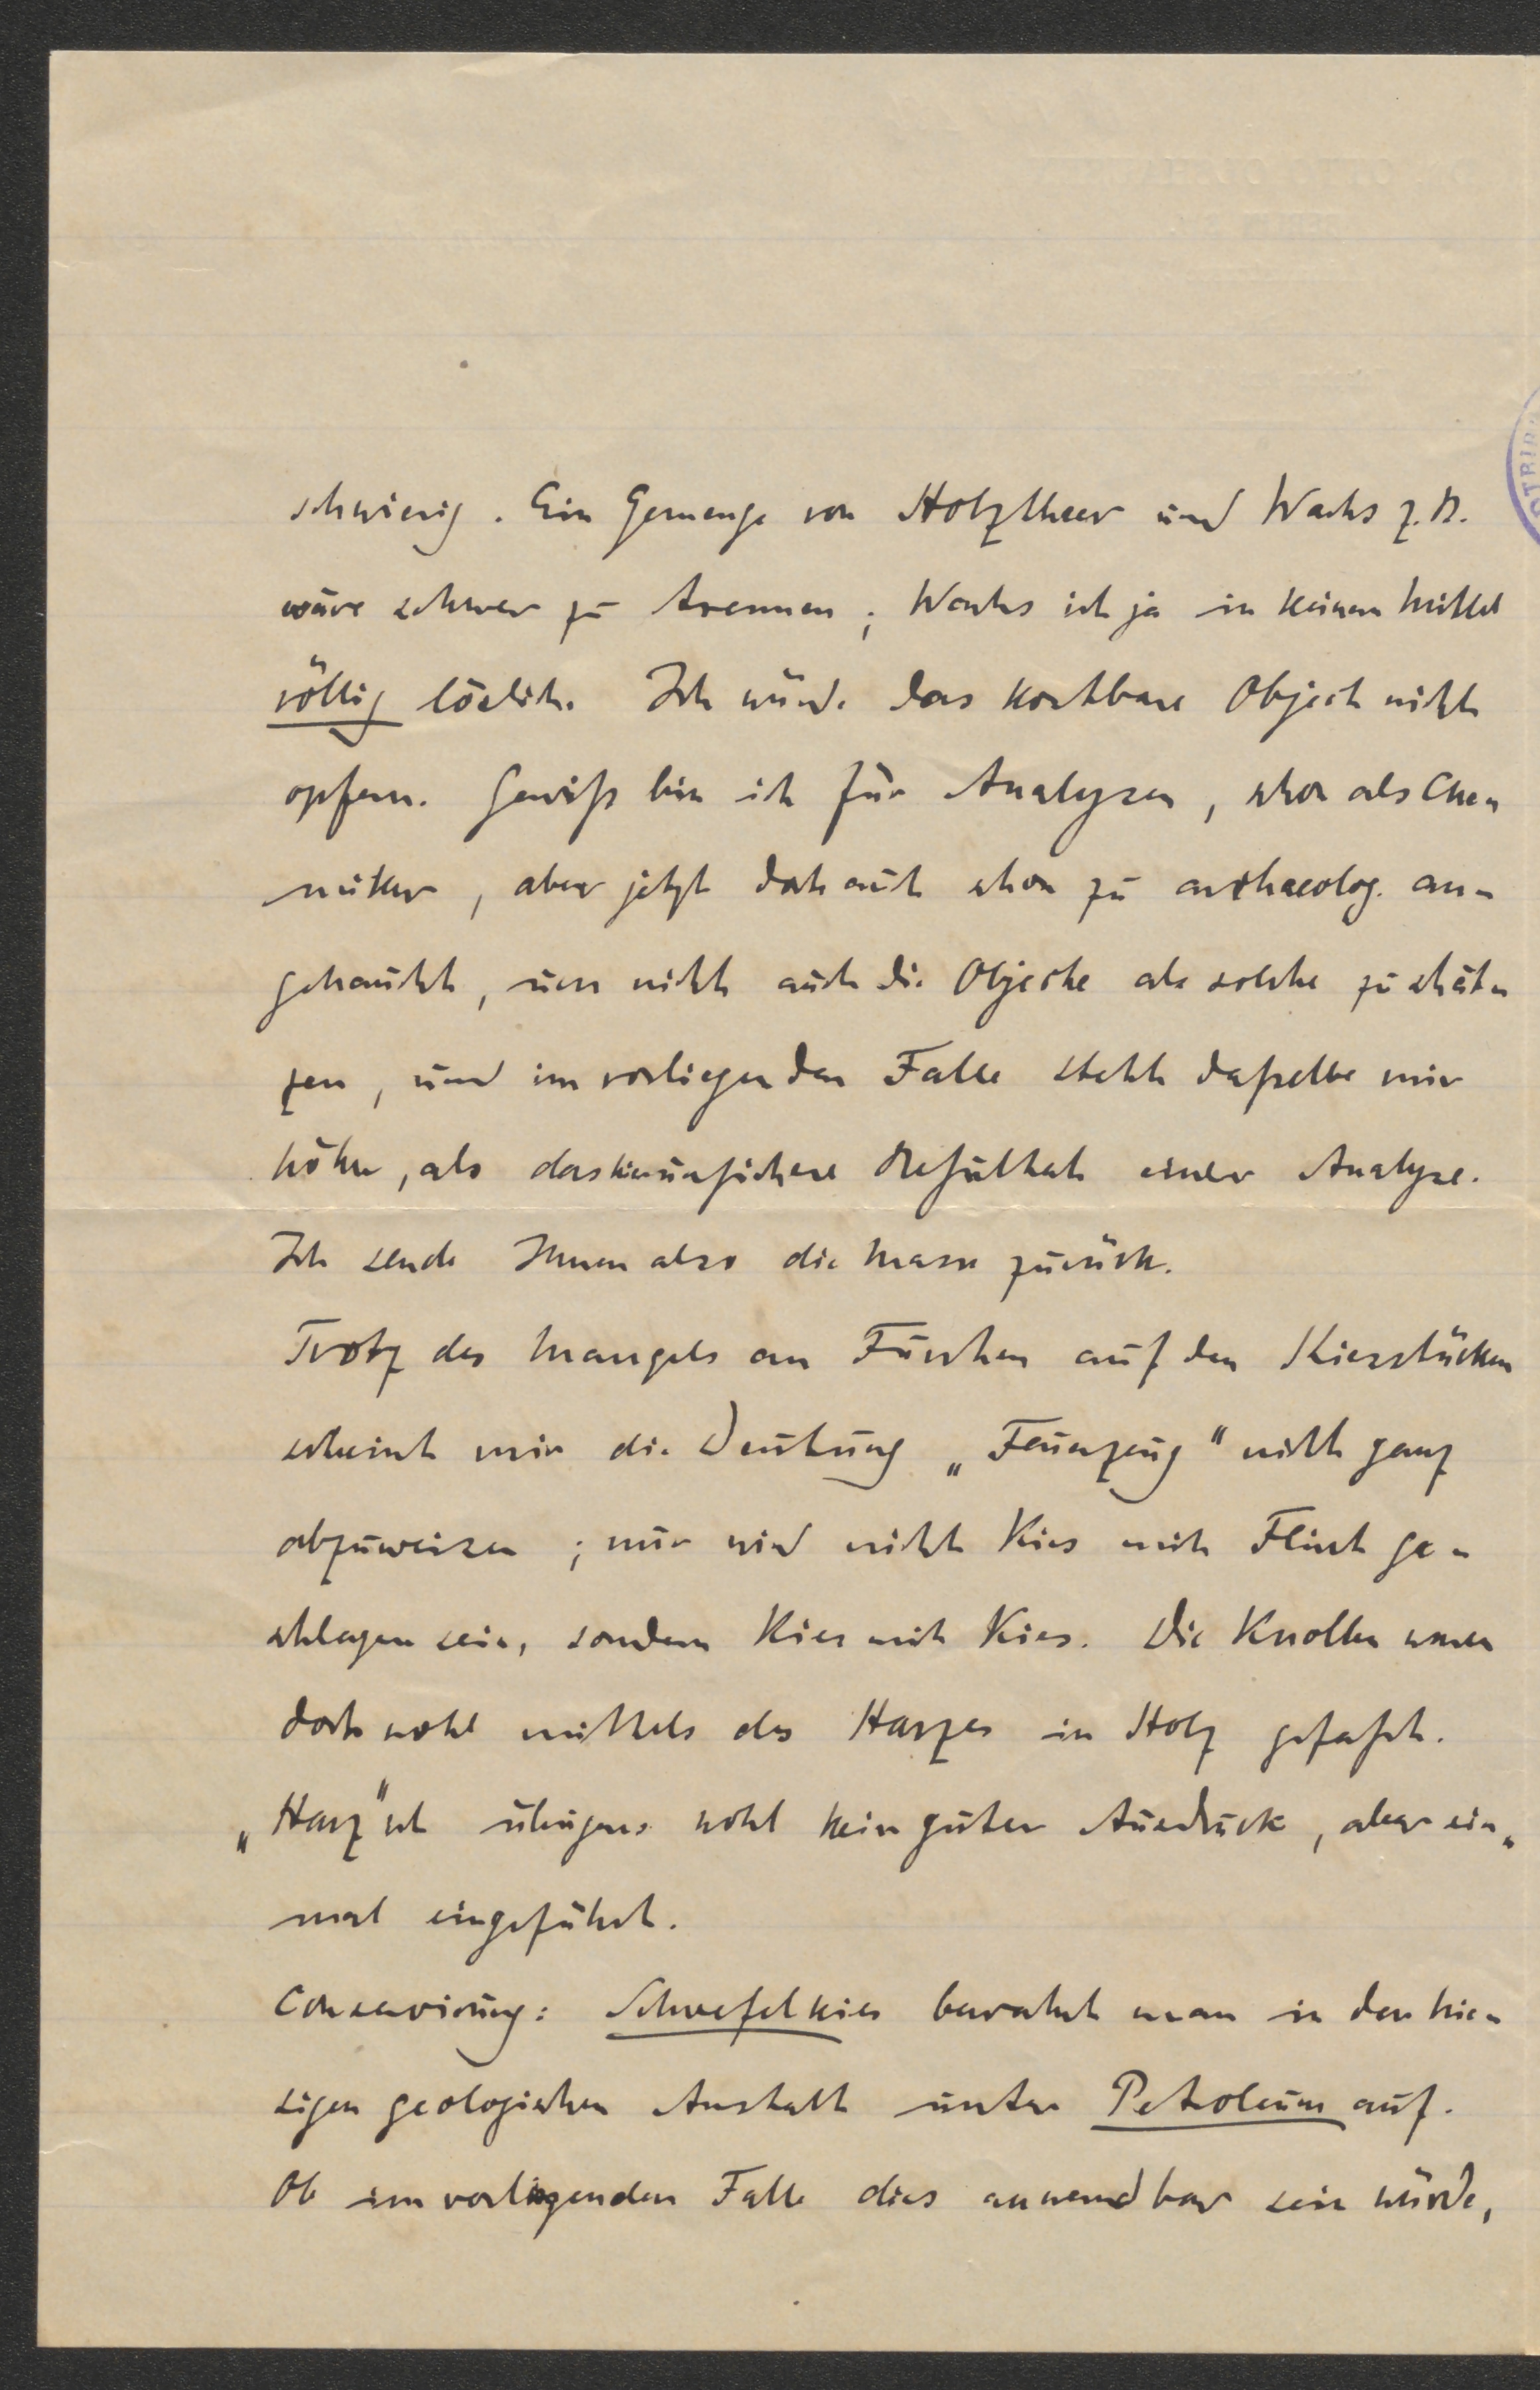 schwierig. Ein Gemenge von Holztheer und Wachs z. B.
wäre schwer zu trennen; Wachs ist ja in keinem Mittel
völlig löslich. Ich würde das kostbare Object nicht
opfern. Gewiß bin ich für Analysen, schon als Che-
miker, aber jetzt doch auch schon zu archaeolog. an-
gehaucht, um nicht auch die Objecte als solche zu schät-
zen, und im vorliegenden Falle steht daßelbe mir
höher, als das hier unsichere Resultat einer Analyse.
Ich sende Ihnen also die Masse zurück.
Trotz des Mangels an Furchen auf den Kiesstücken
scheint mir die Deutung „Feuerzeug" nicht ganz
abzuweisen; nur wird nicht Kies mit Flint ge-
schlagen sein, sondern Kies mit Kies. Die Knollen waren
doch wohl mittels des Harzes in Holz gefaßt.
„Harz" ist übrigens wohl kein guter Ausdruck, aber ein-
mal eingeführt.
Conservirung: Schwefelkies bewahrt man in der hie-
sigen geologischen Anstalt unter Petroleum auf.
Ob im vorliegenden Falle dies anwendbar sein würde,